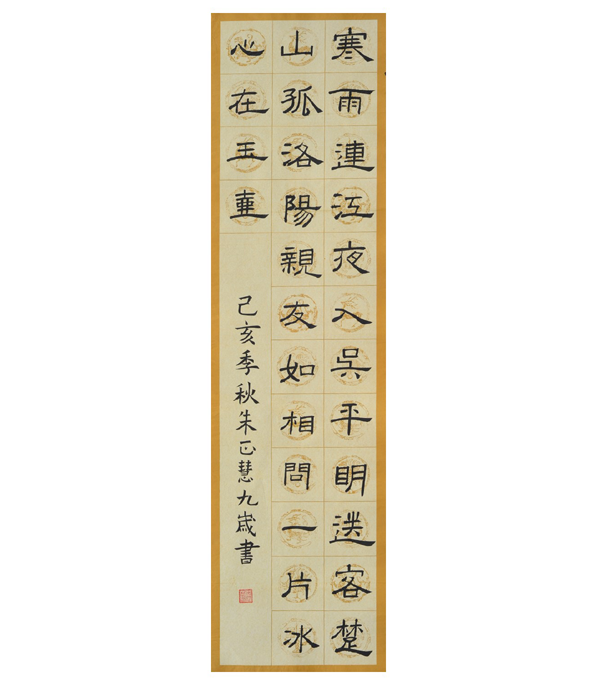 寒雨連江夜入吳平明送客楚
山孤洛陽親友如相問一片冰
心在玉壷
己亥季秋朱正慧九歲書